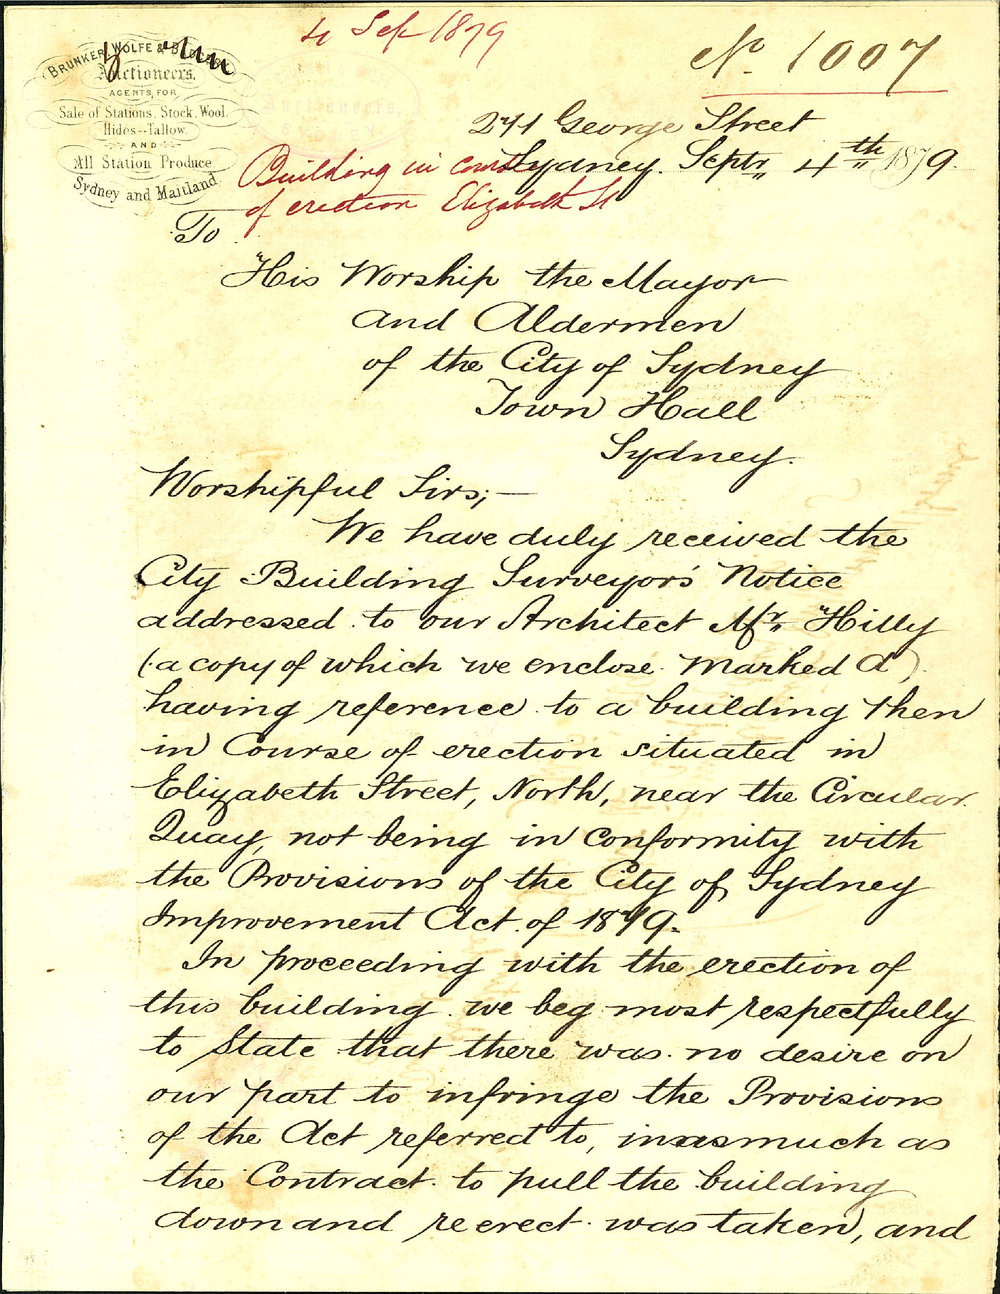 4 Sep 1879
No. 1007
BRUNKER, WOLFE &
Auctioneers,
AGENTS, FOR
Sale of Stations, Stock, Wool,
Hides - Tallow,
AND
All Station Produce
Sydney and Maitland.
Auctioneers,
SYDNEY
271 George Street
Sydney. Septr. 4th 1879.
Building in course
of erection Elizabeth St
To
His Worship the Mayor
and Aldermen
of the City of Sydney
Town Hall
Sydney.
Worshipful Sirs; —
We have duly received the
City Building Surveyor's Notice
addressed to our Architect Mr. Hilly
(a copy of which we enclose marked A)
having reference to a building then
in Course of erection situated in
Elizabeth Street, North, near the Circular
Quay, not being in conformity with
the Provisions of the City of Sydney
Improvement Act of 1879.
In proceeding with the erection of
this building we beg most respectfully
to State that there was no desire on
our part to infringe the Provisions
of the Act referred to, inasmuch as
the Contract to pull the building
down and reerect was taken, and